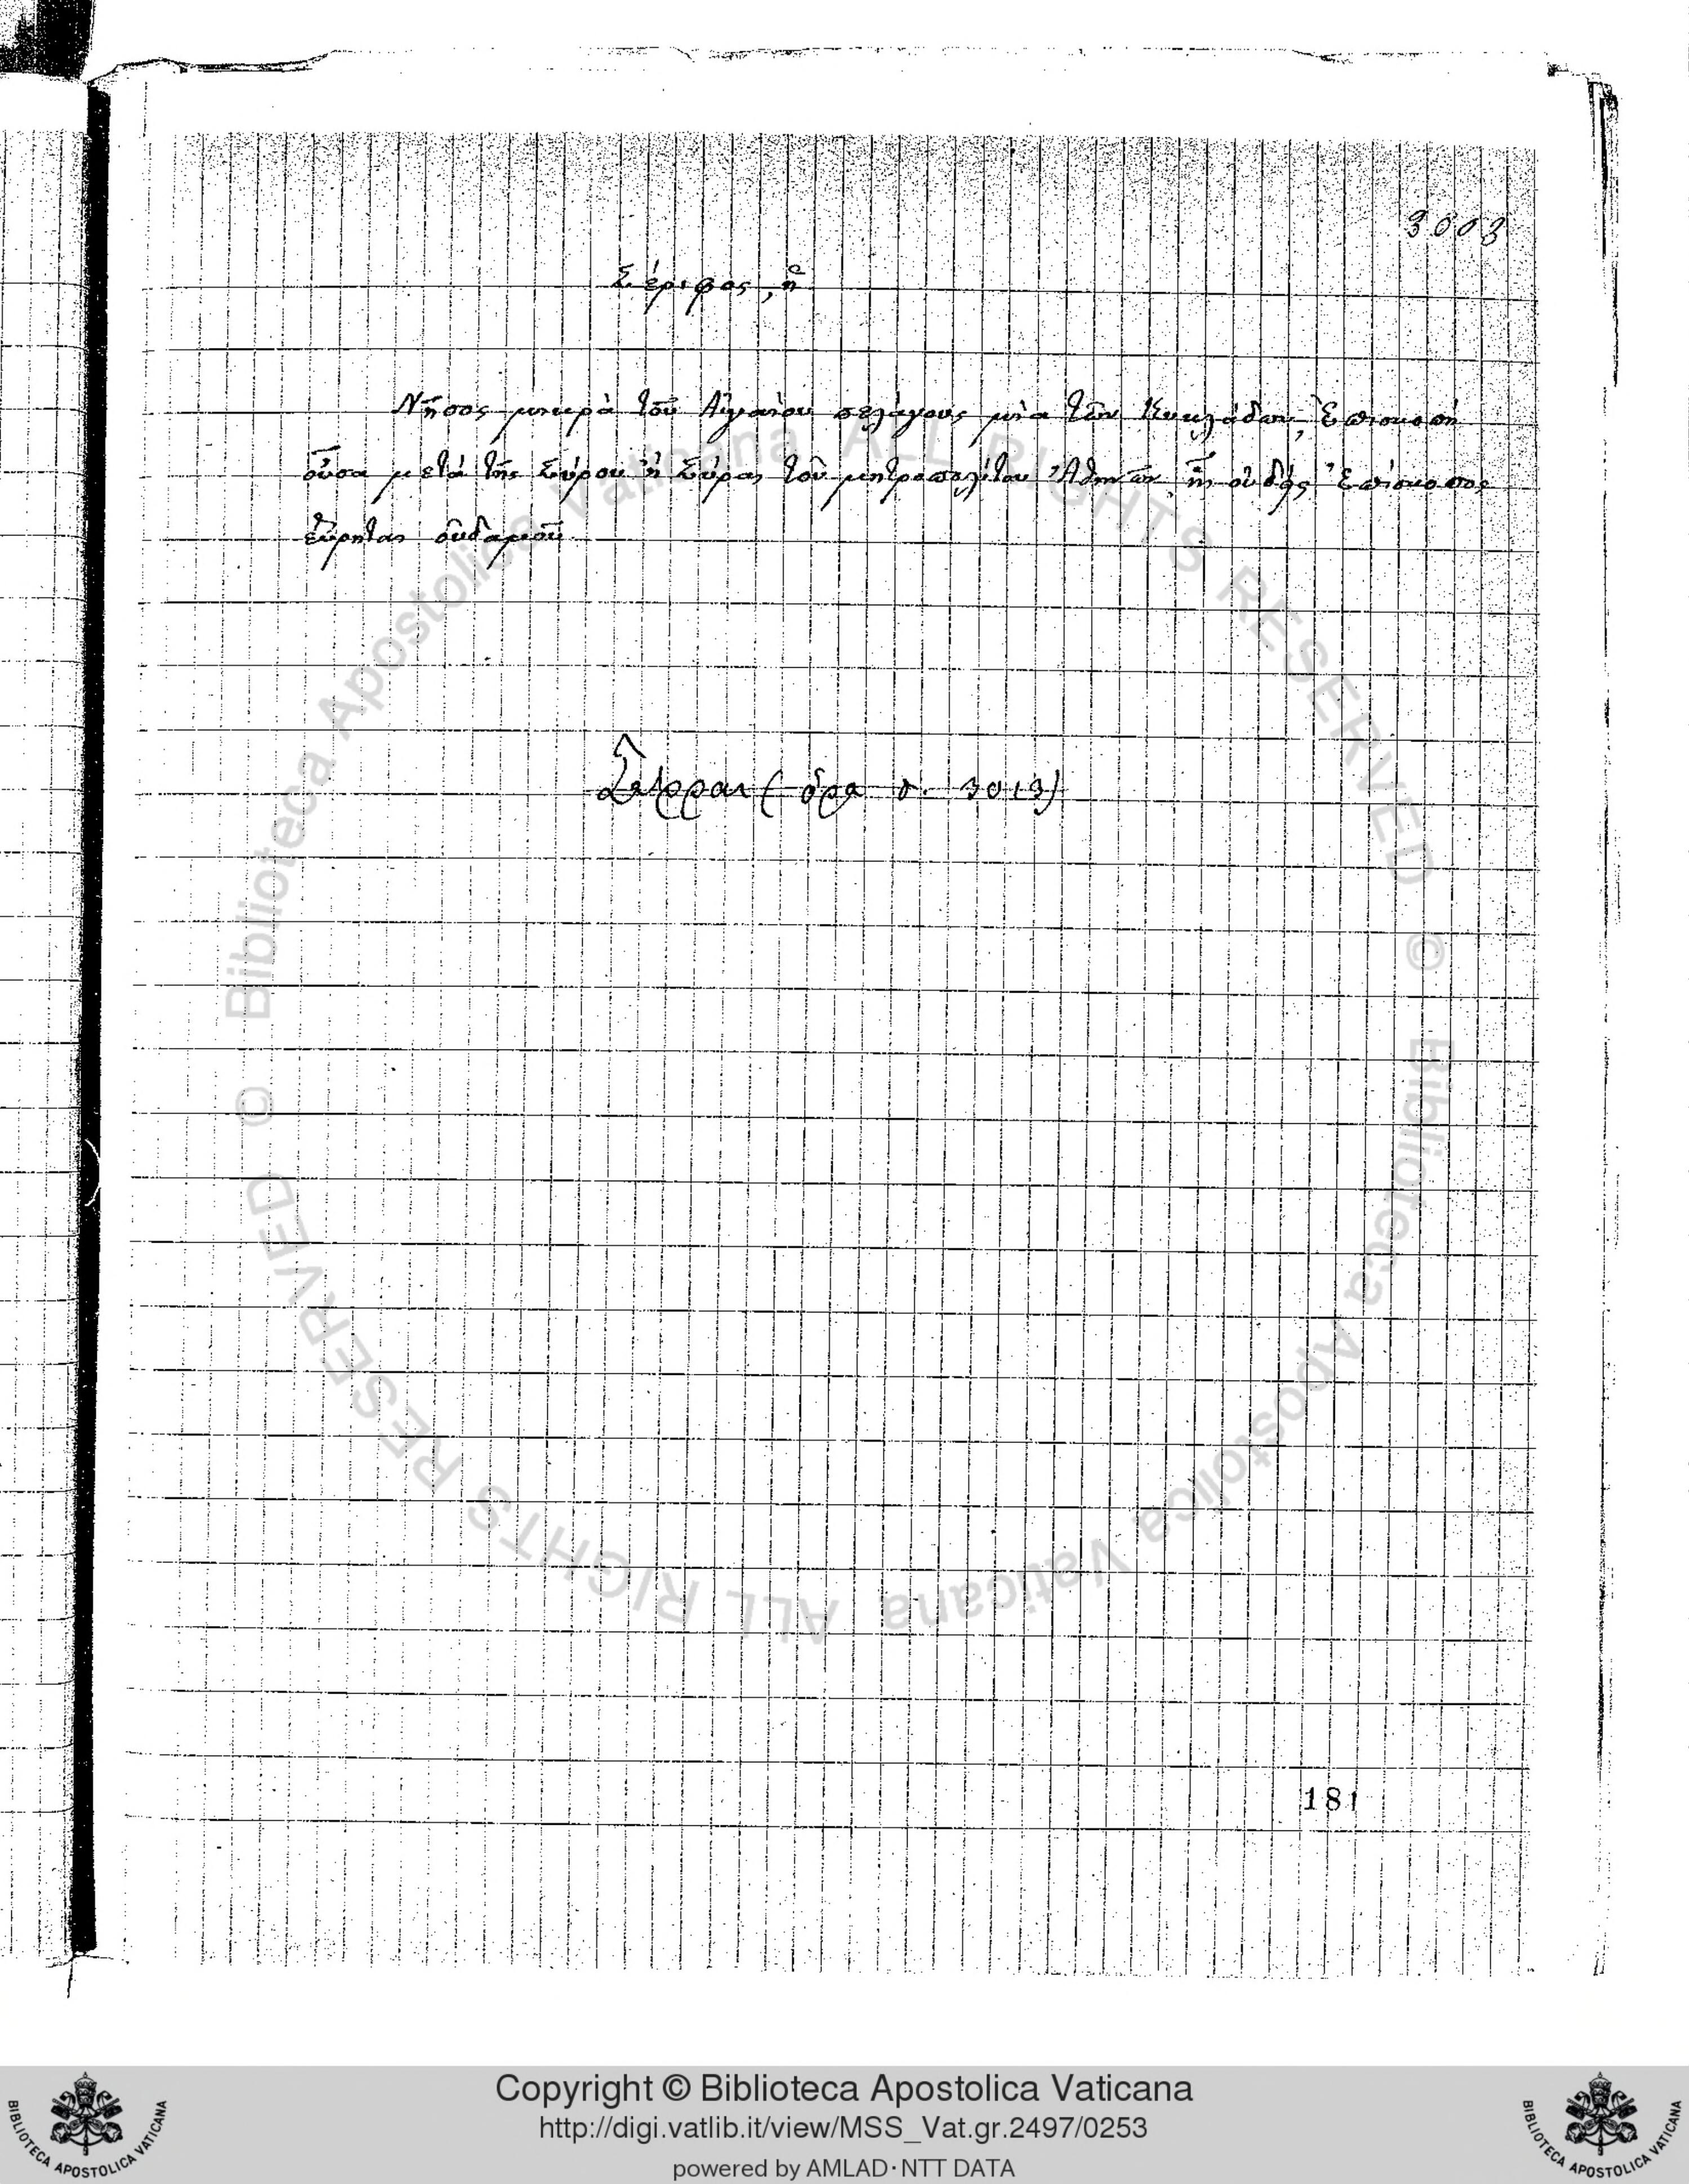 3003
Σέριφος, ἡ
Νῆσος μικρὰ τοῦ Αἰγαίου πελάγους μία τῶν Κυκλάδων, Ἐπισκοπὴ
οὖσα μετὰ τῆς Σύρου ἢ Σύρας τοῦ μητροπολίτου Ἀθηνῶν, ἧς οὐδεὶς Ἐπίσκοπος
εὕρηται οὐδαμοῦ.
(ὅρα σ. 3013)
181
Biblioteca Apostolica Vaticana ALL RIGHTS RESERVED ©
Biblioteca Apostolica Vaticana ALL RIGHTS RESERVED ©
Copyright © Biblioteca Apostolica Vaticana
http://digi.vatlib.it/view/MSS_Vat.gr.2497/0253
powered by AMLAD·NTT DATA
BIBLIOTECA APOSTOLICA VATICANA
BIBLIOTECA APOSTOLICA VATICANA